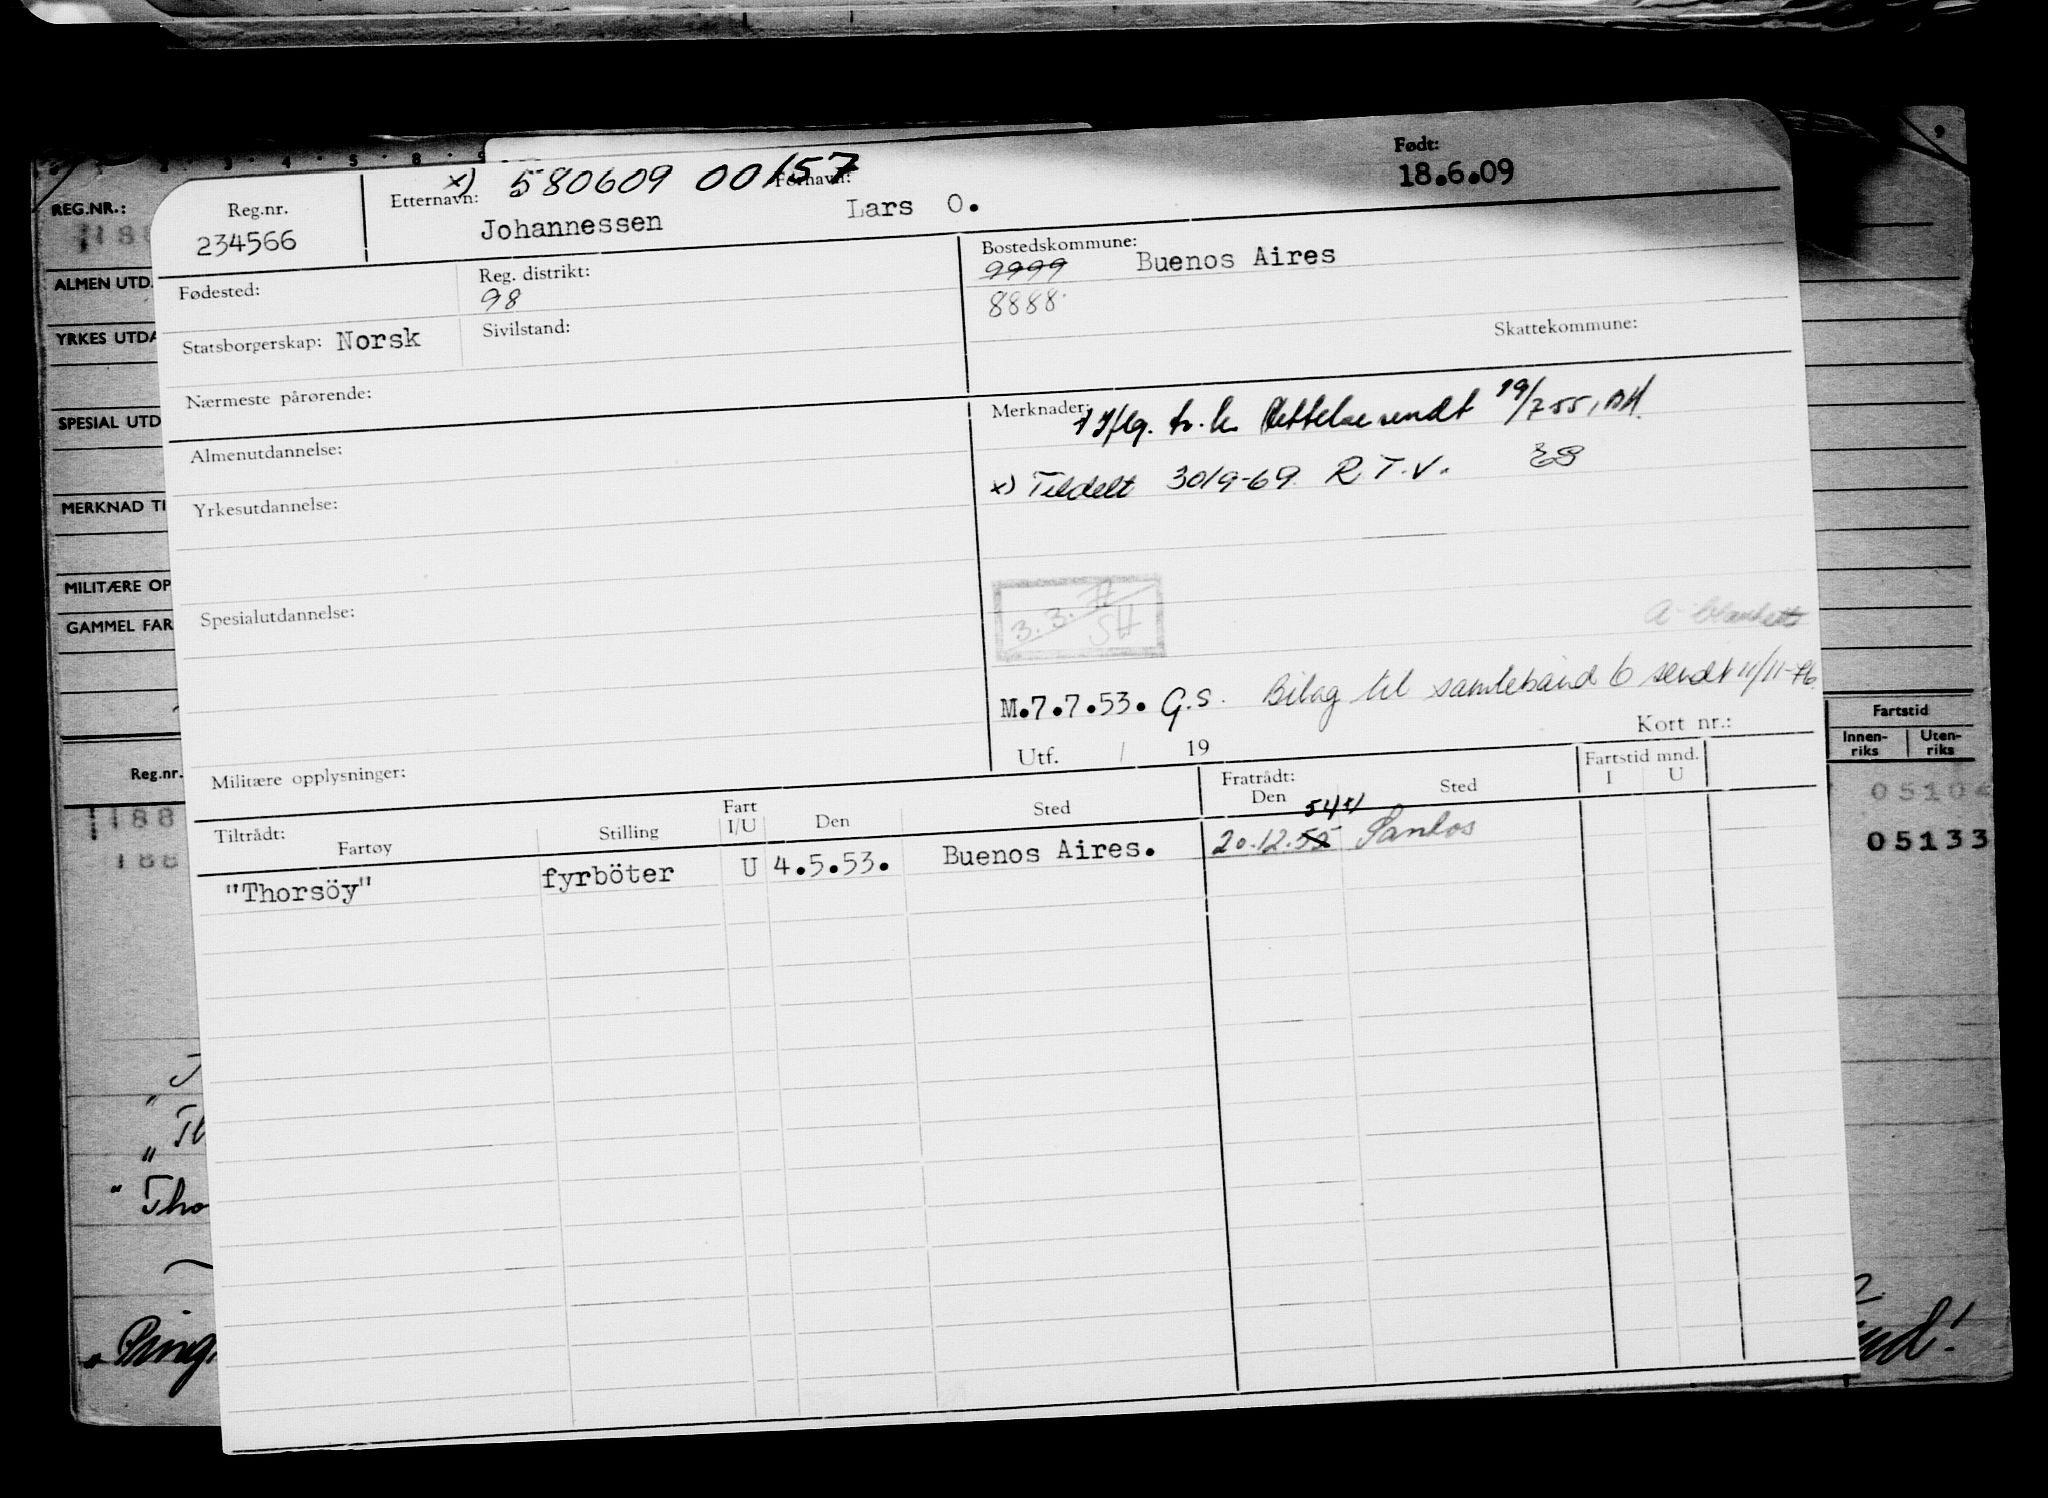 REG.NR.:
ALMEN UTD.
YRKES UTDA
SPESIAL UTD
MERKNAD TI
MILITÆRE OP
GAMMEL FAR
Reg.nr.
Fartstid
Innen-riks Uten-riks
05102
05133
188
188
Reg.nr.
234566
x) 580609 00157
Etternavn: Fornavn:
Johannessen Lars O.
Født:
18.6.09
Fødested:
Reg. distrikt:
98
Bostedskommune:
9999 Buenos Aires
8888
Statsborgerskap: Norsk
Sivilstand:
Skattekommune:
Nærmeste pårørende:
Merknader:
sendt 19/7 55,
x) Tildelt 30/9-69 R.T.V.
Almenutdannelse:
Yrkesutdannelse:
Spesialutdannelse:
3.3.
SH
M.7.7.53. G.S. Bilag til samlebånd 6 sendt 11/11-76.
Utf. / 19
Kort nr.:
Militære opplysninger:
Tiltrådt:
Fartøy
Stilling
Fart
I/U
Den
Sted
Fratrådt:
Den
Sted
Fartstid mnd.
I U
54
"Thorsöy" fyrböter U 4.5.53. Buenos Aires. 20.12.52 Santos
Tho